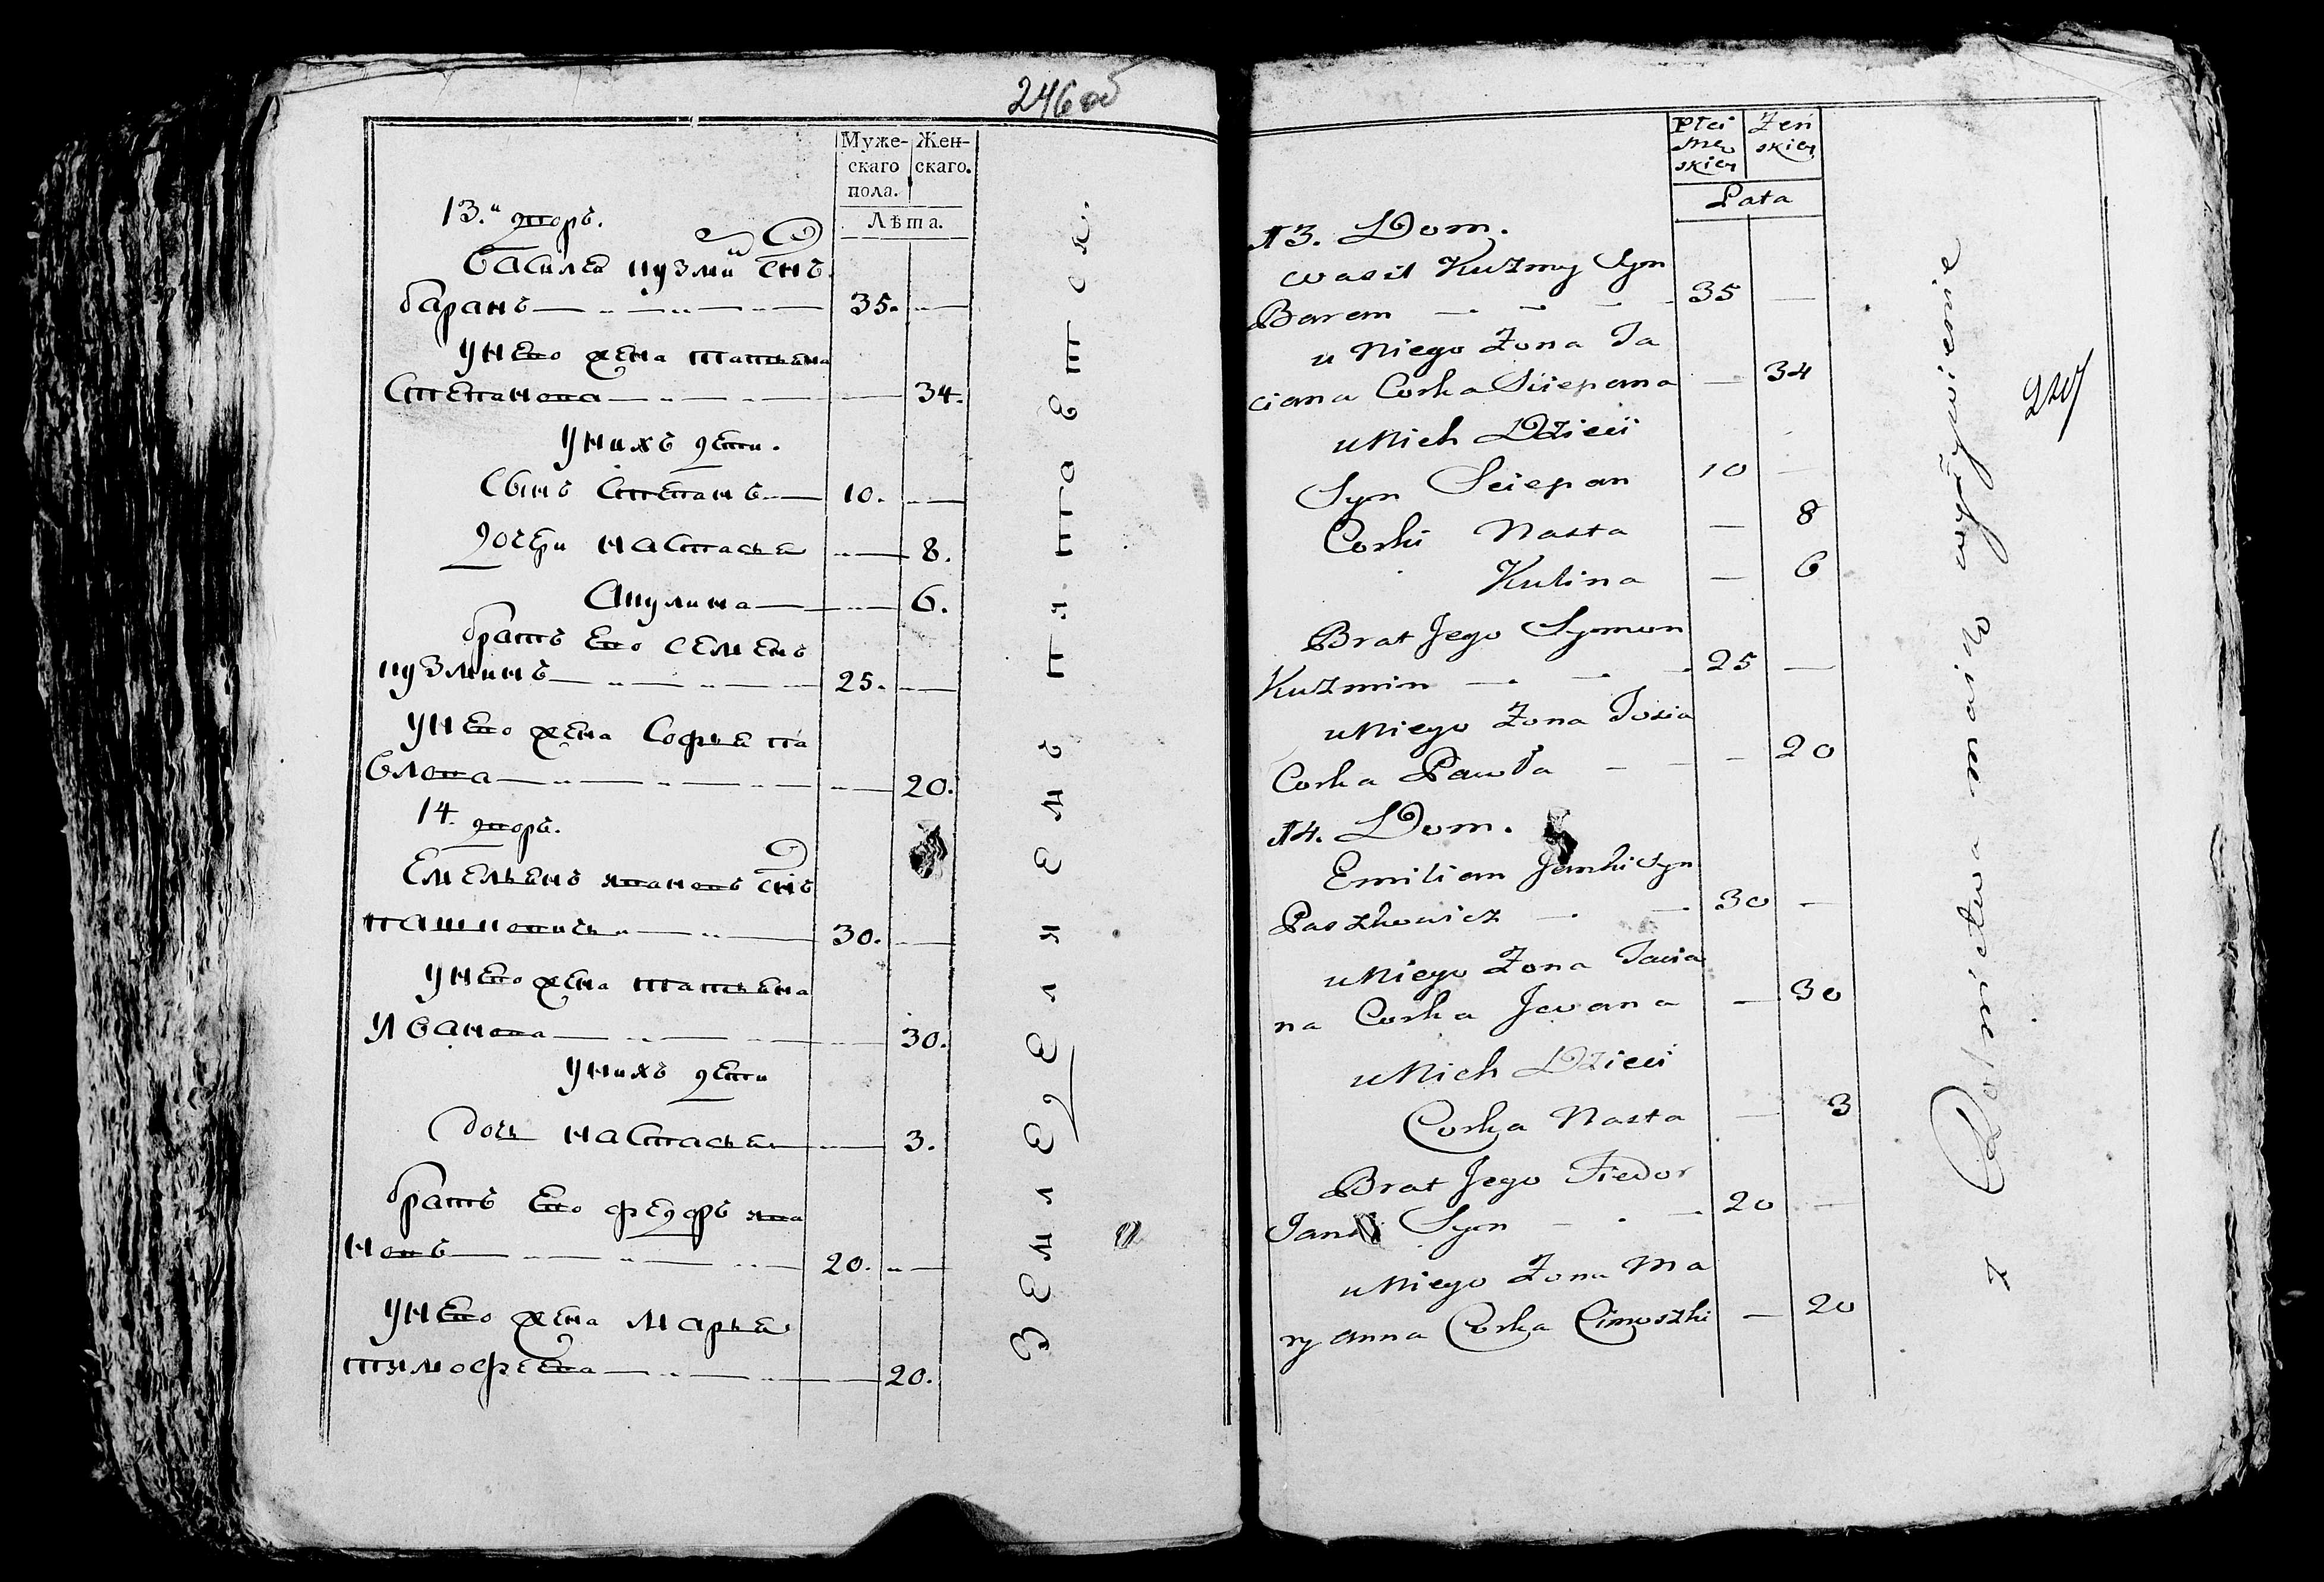 246 об
Муже- Жен-
скаго скаго.
пола.
Лѣта.
13.й дворъ.
Василей кузмин снъ
баранъ 35.
унево жена татьяна
Степанова 34.
унихъ дети.
Сынъ Степанъ 10.
дочери настасья 8.
Акулина 6.
братъ Ево семенъ
кузминъ 25.
унево жена Софья па
влова 20.
14. дворъ.
Емельянъ янановъ снъ
пашковичъ 30.
унево жена татьяна
Иванова 30.
унихъ дети
дочь настасья 3.
братъ Ево федоръ яна
новъ 20.
унево жена марья
тимофеева 20.
Земледелием питаются.
Płci Żeń
Mę skiey
skiey
Lata
13. Dom.
Wasil Kuzmy Syn
Baran 35
u Niego Żona Ta
ciana Corka Sciepana 34
u Nich Dzieci
Syn Sciepan 10
Corki Nasta 8
Kulina 6
Brat Jego Symon
Kuzmin 25
u Niego Żona Zosia
Corka Pawła 20
14. Dom.
Emilian Janki Syn
Paszkowicz 30
u Niego Żona Tacia
na Corka Jwana 30
u Nich Dzieci
Corka Nasta 3
Brat Jego Fiedor
Janki Syn 20
u Niego Żona Ma
ryanna Corka Cimoszki 20
z Rolnictwa maią wyżywienie